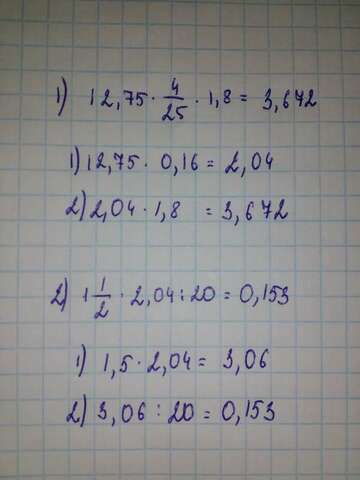 1) 12,75 · 4/25 · 1,8 = 3,672
1) 12,75 · 0,16 = 2,04
2) 2,04 · 1,8 = 3,672
2) 1 1/2 · 2,04 : 20 = 0,153
1) 1,5 · 2,04 = 3,06
2) 3,06 : 20 = 0,153